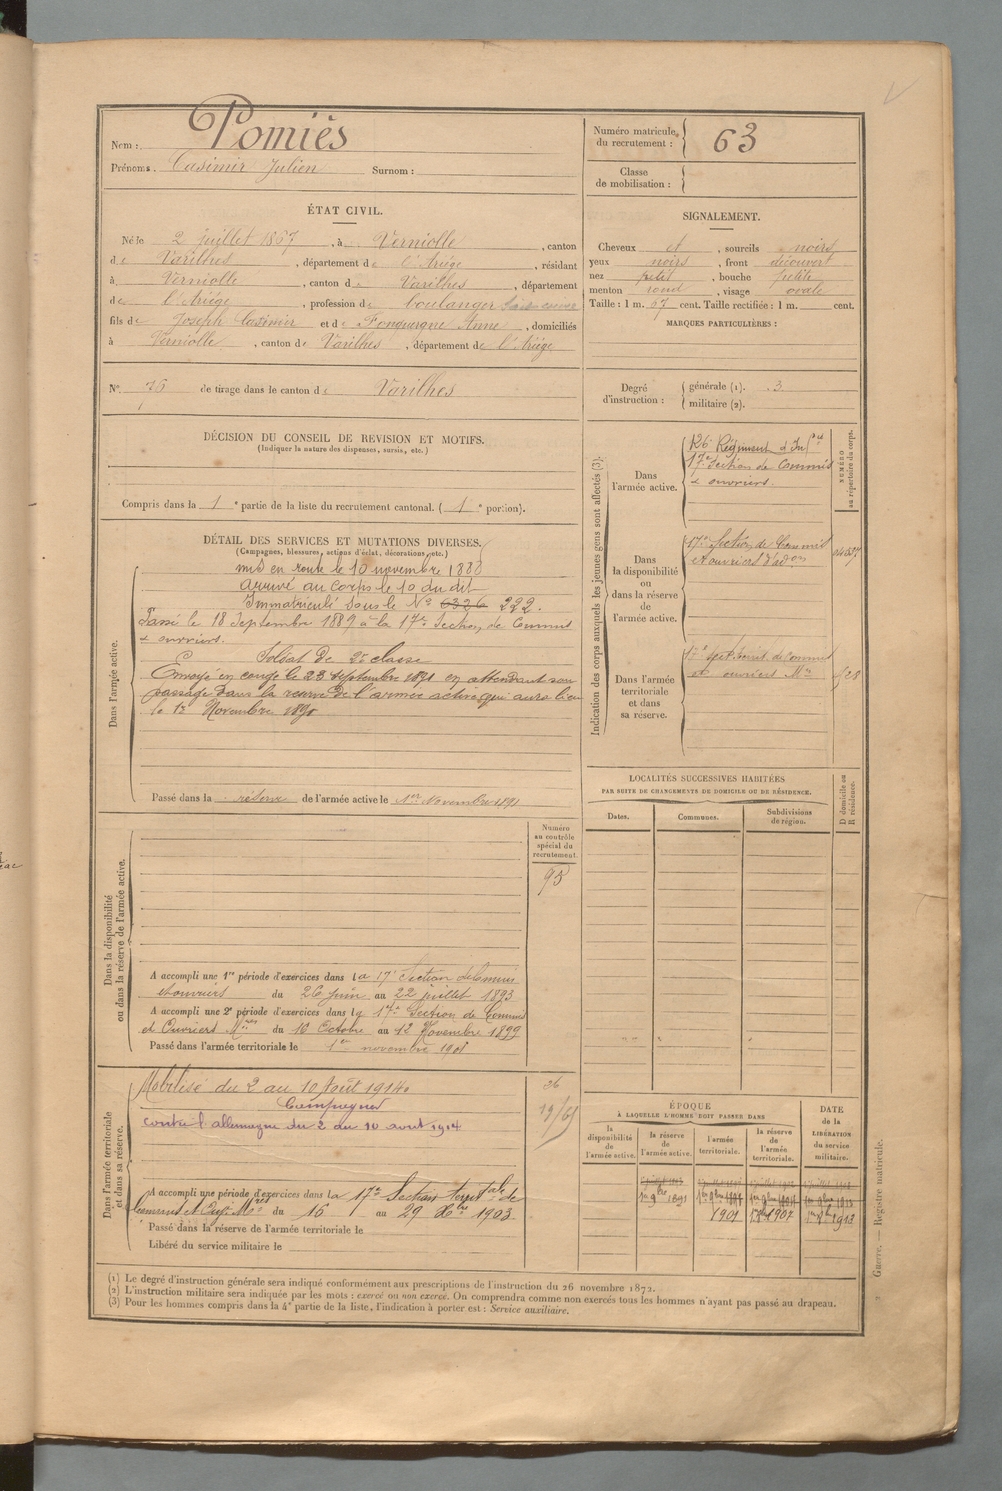 Nom : Pomiès
Prénoms. Casimir Julien Surnom :
Numéro matricule du recrutement : 63
Classe de mobilisation :
ÉTAT CIVIL.
Né le 2 juillet 1867, à Verniolle, canton
de Varilhes, département de l'Ariège, résidant
à Verniolle, canton de Varilhes, département
de l'Ariège, profession de boulanger
fils de Joseph Casimir et de Fonquergne Anne, domiciliés
à Verniolle, canton de Varilhes, département de l'Ariège
N° 76 de tirage dans le canton de Varilhes
SIGNALEMENT.
Cheveux et, sourcils noirs
yeux noirs, front découvert
nez petit, bouche petite
menton rond, visage ovale
Taille : 1 m. 67 cent. Taille rectifiée : 1 m. cent.
MARQUES PARTICULIÈRES :
Degré d'instruction : générale (1). 3
militaire (2).
DÉCISION DU CONSEIL DE REVISION ET MOTIFS.
(Indiquer la nature des dispenses, sursis, etc.)
Compris dans la 1e partie de la liste du recrutement cantonal. (1e portion).
DÉTAIL DES SERVICES ET MUTATIONS DIVERSES.
(Campagnes, blessures, actions d'éclat, décorations, etc.)
Dans l'armée active.
mis en route le 10 novembre 1888
arrivé au corps le 10 du dit
Immatriculé sous le N° 6326 222.
Passé le 18 Septembre 1889 à la 17e Section de Commis
& ouvriers.
Soldat de 2e classe
Envoyé en congé le 23 septembre 1891 en attendant son
passage dans la réserve de l'armée active qui aura lieu
le 1er Novembre 1891
Passé dans la réserve de l'armée active le 1er Novembre 1891
Indication des corps auxquels les jeunes gens sont affectés (3).
NUMÉRO au répertoire du corps.
Dans l'armée active.
126 Régiment d'Inf
17e Section de Commis
& ouvriers.
Dans la disponibilité ou dans la réserve de l'armée active.
17e Section de Commis
et ouvriers d'adon
Dans l'armée territoriale et dans sa réserve.
et ouvriers Mre
LOCALITÉS SUCCESSIVES HABITÉES
PAR SUITE DE CHANGEMENTS DE DOMICILE OU DE RÉSIDENCE.
D domicile ou R résidence.
Dates. Communes. Subdivisions de région.
Dans la disponibilité ou dans la réserve de l'armée active.
Numéro au contrôle spécial du recrutement.
95
A accompli une 1re période d'exercices dans la 17e Section de Commis
et ouvriers du 26 juin au 22 juillet 1893
A accompli une 2e période d'exercices dans la 17e Section de Commis
et Ouvriers Mres du 16 Octobre au 12 Novembre 1899
Passé dans l'armée territoriale le 1er novembre 1901
Dans l'armée territoriale et dans sa réserve.
26
Mobilisé du 2 au 10 Août 1914.
Campagnes
contre l'allemagne du 2 au 10 aout 1914
A accompli une période d'exercices dans la 17e Section territale de
Commis et Ouv. Mres du 16 au 29 Xbre 1903
Passé dans la réserve de l'armée territoriale le
Libéré du service militaire le
ÉPOQUE
À LAQUELLE L'HOMME DOIT PASSER DANS
la disponibilité de l'armée active. la réserve de l'armée active. l'armée territoriale. la réserve de l'armée territoriale.
DATE de la LIBÉRATION du service militaire.
1er 9bre 1891
1901 1907 1913
(1) Le degré d'instruction générale sera indiqué conformément aux prescriptions de l'instruction du 26 novembre 1872.
(2) L'instruction militaire sera indiquée par les mots : exercé ou non exercé. On comprendra comme non exercés tous les hommes n'ayant pas passé au drapeau.
(3) Pour les hommes compris dans la 4e partie de la liste, l'indication à porter est : Service auxiliaire.
Guerre. — Registre matricule.